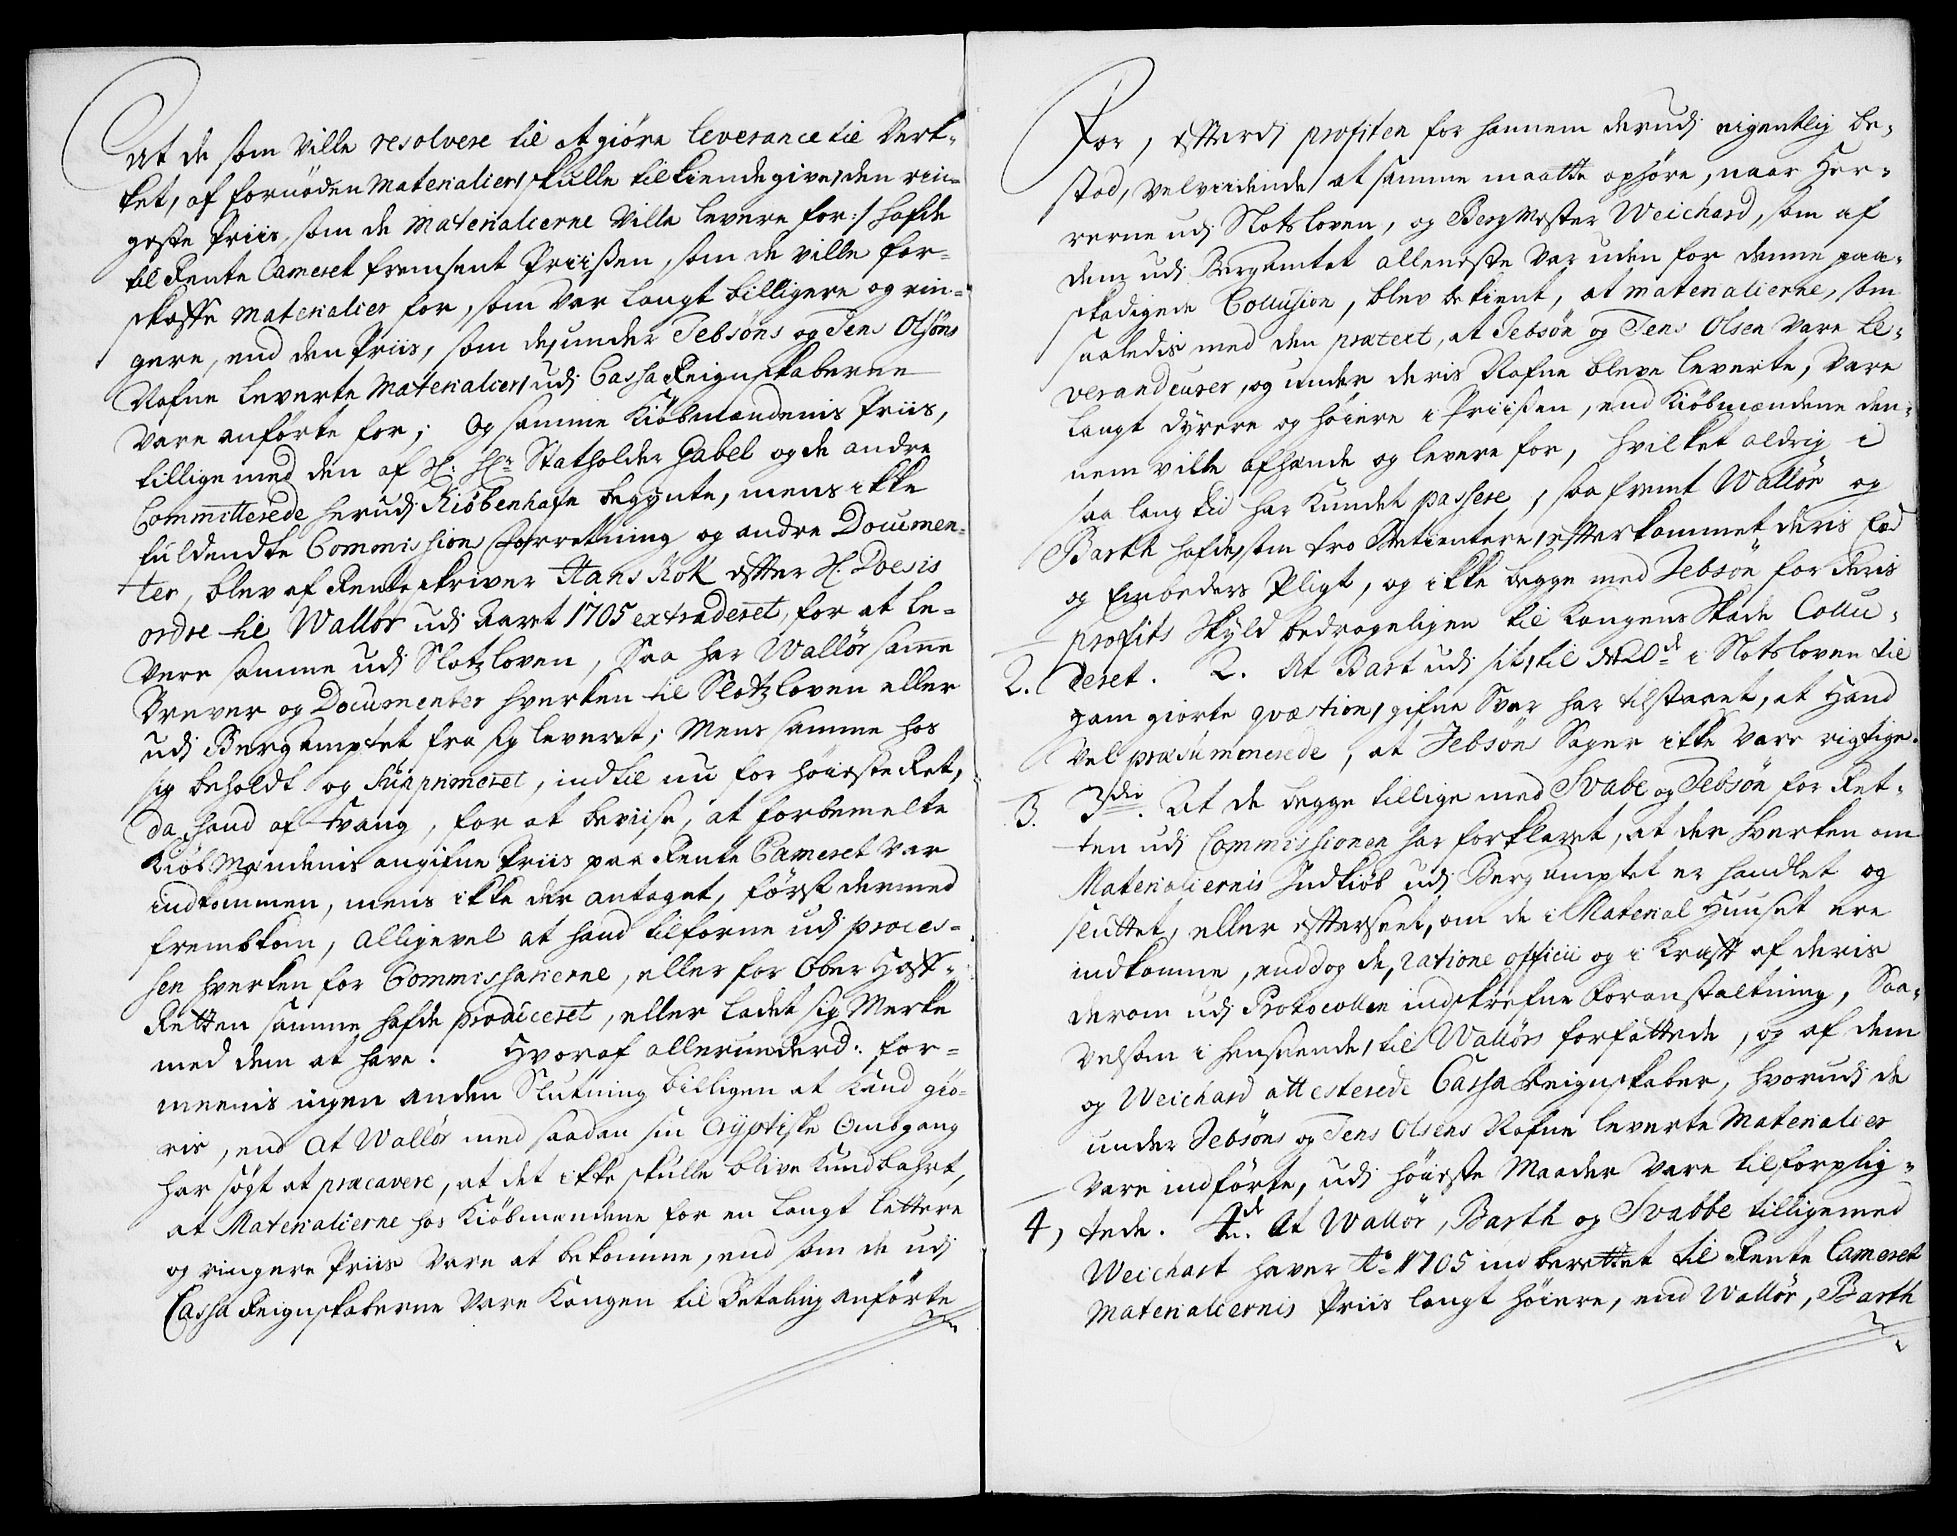 At de som Ville resolvere til at giöre leverance til Verk-
ket, af fornöden Materialier, skulle tilkiendegive, den rin-
geste Priis, som de Materialierne Ville levere for :/ hafde
til Rente Cameret fremsent Priisen, som de ville for-
skaffe Materialier for, som var langt billigere og rin-
gere, end den Priis, som de, under Jebsöns og Jens Olsöns
Nafne leverte Materialier, udj Cassa Reignskaberne
Vare anförte for; Og samme Kiöbmændenis Priis,
tillige med den af H: Hr Statholder Gabel og de andre
Committerede herudj Kiöbenhafn begynte, mens ikke
fuldendte Commission Forretning og andre Documen-
ter, blev af Rente skriver Hans Kok efter H. Doesis
ordre til Wallör udj Aaret 1705 extraderet, for at le-
vere samme udj Slotzloven, Saa har Wallör samme
Brever og Documenter hverken til Slotzloven eller
udj Bergamptet fra sig leveret; Mens samme hos
sig beholdt og Supprimeret, indtil nu for höieste Ret,
da hand af tvang, for at beviise, at forbemelte
Kiöb Mændenis angifne Priis paa Rente Cameret var
indkommen, mens ikke der antaget, först dermed
frembkom, Alligevel at hand tilforne udj proces-
sen hverken for Commissarierne, eller for Ober Hoff-
Retten samme hafde produceret, eller ladet sig Merke
med dem at have. Hvoraf allerunderd: for-
meenis ingen anden Slutning billigen at kand giö-
ris, end At Wallör med saadan sin Ægyptiske Ombgang
har sögt at præcavere, at det ikke skulle blive kundbahrt,
at Materialierne hos Kiöbmændene for en langt lettere
og ringere Priis vare at bekomme, end som de udj
Cassa Reignskaberne vare Kongen til Betaling anförte
For, efterdj profiten for hannem derudj eigentlig be-
stod, velvidende at samme maatte ophöre, naar Her-
rerne udj Slotsloven, og BergMester Weichard, som af
dem udj Bergamtet alleneste var uden for denne paa-
skadigede Collusion, blev bekient, at Materialierne, som
saaledis med den prætext, at Jebsön og Jens Olsen vare Le-
verandeurer, og under deris Nafne bleve leverte, vare
langt dyrere og höiere i Priisen, end Kiöbmændene den-
nem ville afhænde og levere for, hvilket aldrig i
saa lang tid har kundet passere, saa fremt Wallör og
Barth hafde, som tro Betientere, efterkommet deris Eed
og Embeders Pligt, og ikke begge med Jebsön for deris
profits skyld bedragelligen til Kongens skade Collu-
2. deret. 2. At Bart udj sit, til det 20de i Slotsloven til
ham giorte qvæstion, gifne Svar har tilstaaet, at hand
vel præsumerede, at Jebsöns Sager ikke vare rigtige.
3. 3die. At de begge tillige med Svabe og Jebsön for Ret-
ten udj Commissionen har forklaret, at der hverken om
Materialiernis Indkiöb udj Bergamptet er handlet og
sluttet, eller efterseet, om de i Material Huuset ere
indkomne, enddog de, ratione officii og i Kraft af deris
derom udj Protocollen indskrefne Foranstaltning, Saa-
velsom i henseende, til Wallörs forfattede, og af dem
og Weichard attesterede Cassa Reignskaber, hvorudj de
under Jebsöns og Jens Olsens Nafne leverte Materialier
vare indförte, udj höieste Maader vare tilforplig-
4, tede. 4de. At Wallör, Barth og Svabbe tilligemed
Weichart haver Ao 1705 indberettet til Rente Cameret
Materialiernis Priis langt höiere, end Wallör, Barth